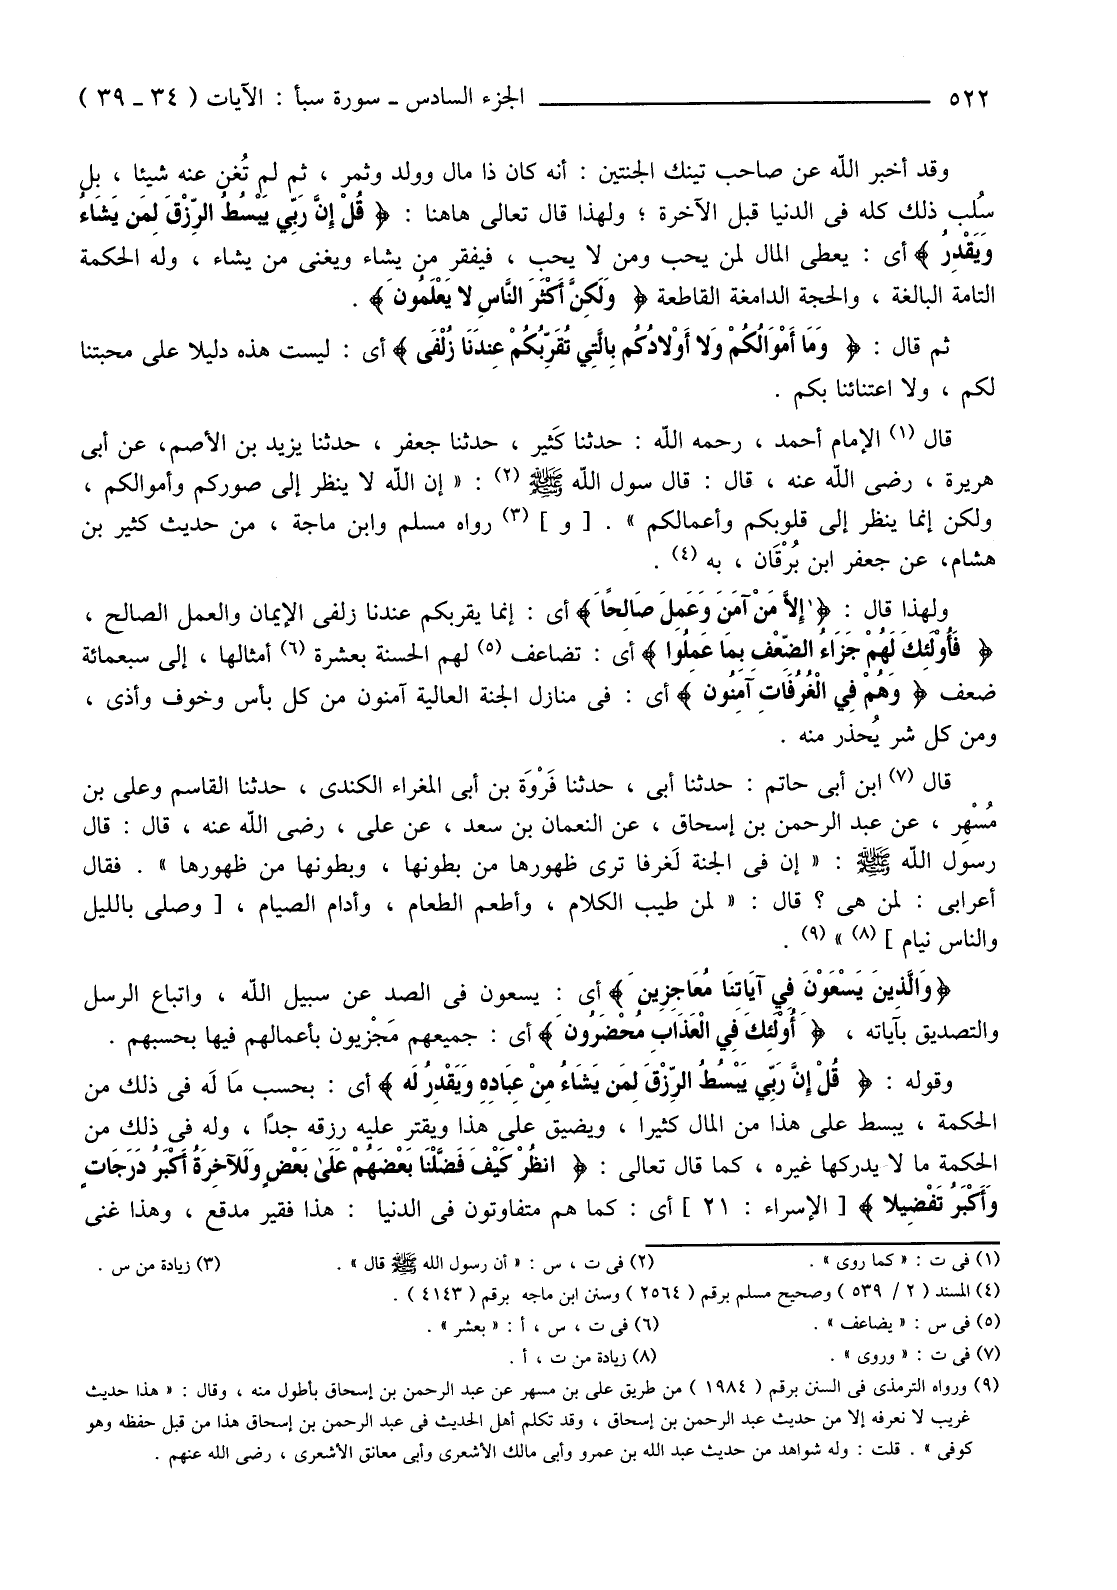 ٥٢٢ ــــــــــ الجزء السادس ـ سورة سبأ : الآيات ( ٣٤ ـ ٣٩ )
وقد أخبر الله عن صاحب تينك الجنتين : أنه كان ذا مال وولد وثمر ، ثم لم تُغن عنه شيئا ، بل
سلُب ذلك كله فى الدنيا قبل الآخرة ؛ ولهذا قال تعالى هاهنا : ﴿ قُلْ إِنَّ رَبِّي يَبْسُطُ الرِّزْقَ لِمَن يَشَاءُ
وَيَقْدِرُ ﴾ أى : يعطى المال لمن يحب ومن لا يحب ، فيفقر من يشاء ويغنى من يشاء ، وله الحكمة
التامة البالغة ، والحجة الدامغة القاطعة ﴿ وَلَكِنَّ أَكْثَرَ النَّاسِ لا يَعْلَمُونَ ﴾ .
ثم قال : ﴿ وَمَا أَمْوَالُكُمْ وَلا أَوْلادُكُم بِالَّتِي تُقَرِّبُكُمْ عِندَنَا زُلْفَى ﴾ أى : ليست هذه دليلا على محبتنا
لكم ، ولا اعتنائنا بكم .
قال (١) الإمام أحمد ، رحمه الله : حدثنا كَثير ، حدثنا جعفر ، حدثنا يزيد بن الأصم، عن أبى
هريرة ، رضى الله عنه ، قال : قال سول الله ﷺ (٢) : « إن الله لا ينظر إلى صوركم وأموالكم ،
ولكن إنما ينظر إلى قلوبكم وأعمالكم » . [ و ] (٣) رواه مسلم وابن ماجة ، من حديث كثير بن
هشام، عن جعفر ابن بُرْقَان ، به (٤) .
ولهذا قال : ﴿ إِلاَّ مَنْ آمَنَ وَعَمِلَ صَالِحًا ﴾ أى : إنما يقربكم عندنا زلفى الإيمان والعمل الصالح ،
﴿ فَأُوْلَئِكَ لَهُمْ جَزَاءُ الضِّعْفِ بِمَا عَمِلُوا ﴾ أى : تضاعف (٥) لهم الحسنة بعشرة (٦) أمثالها ، إلى سبعمائة
ضعف ﴿ وَهُمْ فِي الْغُرُفَاتِ آمِنُونَ ﴾ أى : فى منازل الجنة العالية آمنون من كل بأس وخوف وأذى ،
ومن كل شر يُحذر منه .
قال (٧) ابن أبى حاتم : حدثنا أبى ، حدثنا فَرْوَة بن أبى المغراء الكندى ، حدثنا القاسم وعلى بن
مُسْهِر ، عن عبد الرحمن بن إسحاق ، عن النعمان بن سعد ، عن على ، رضى الله عنه ، قال : قال
رسول الله ﷺ : « إن فى الجنة لَغرفا ترى ظهورها من بطونها ، وبطونها من ظهورها » . فقال
أعرابى : لمن هى ؟ قال : « لمن طيب الكلام ، وأطعم الطعام ، وأدام الصيام ، [ وصلى بالليل
والناس نيام ] (٨) » (٩) .
﴿ وَالَّذِينَ يَسْعَوْنَ فِي آيَاتِنَا مُعَاجِزِينَ ﴾ أى : يسعون فى الصد عن سبيل الله ، واتباع الرسل
والتصديق بآياته ، ﴿ أُوْلَئِكَ فِي الْعَذَابِ مُحْضَرُونَ ﴾ أى : جميعهم مَجْزيون بأعمالهم فيها بحسبهم .
وقوله : ﴿ قُلْ إِنَّ رَبِّي يَبْسُطُ الرِّزْقَ لِمَن يَشَاءُ مِنْ عِبَادِهِ وَيَقْدِرُ لَهُ ﴾ أى : بحسب مَا لَه فى ذلك من
الحكمة ، يبسط على هذا من المال كثيرا ، ويضيق على هذا ويقتر عليه رزقه جدًا ، وله فى ذلك من
الحكمة ما لا يدركها غيره ، كما قال تعالى : ﴿ انظُرْ كَيْفَ فَضَّلْنَا بَعْضَهُمْ عَلَىٰ بَعْضٍ وَلَلآخِرَةُ أَكْبَرُ دَرَجَاتٍ
وَأَكْبَرُ تَفْضِيلا ﴾ [ الإسراء : ٢١ ] أى : كما هم متفاوتون فى الدنيا : هذا فقير مدقع ، وهذا غنى
(١) فى ت : « كما روى » . (٢) فى ت ، س : « أن رسول الله ﷺ قال » . (٣) زيادة من س .
(٤) المسند ( ٢ / ٥٣٩ ) وصحيح مسلم برقم ( ٢٥٦٤ ) وسنن ابن ماجه برقم ( ٤١٤٣ ) .
(٥) فى س : « يضاعف » . (٦) فى ت ، س ، أ : « بعشر » .
(٧) فى ت : « وروى » . (٨) زيادة من ت ، أ .
(٩) ورواه الترمذى فى السنن برقم ( ١٩٨٤ ) من طريق على بن مسهر عن عبد الرحمن بن إسحاق بأطول منه ، وقال : « هذا حديث
غريب لا نعرفه إلا من حديث عبد الرحمن بن إسحاق ، وقد تكلم أهل الحديث فى عبد الرحمن بن إسحاق هذا من قبل حفظه وهو
كوفى » . قلت : وله شواهد من حديث عبد الله بن عمرو وأبى مالك الأشعرى وأبى معانق الأشعرى ، رضى الله عنهم .